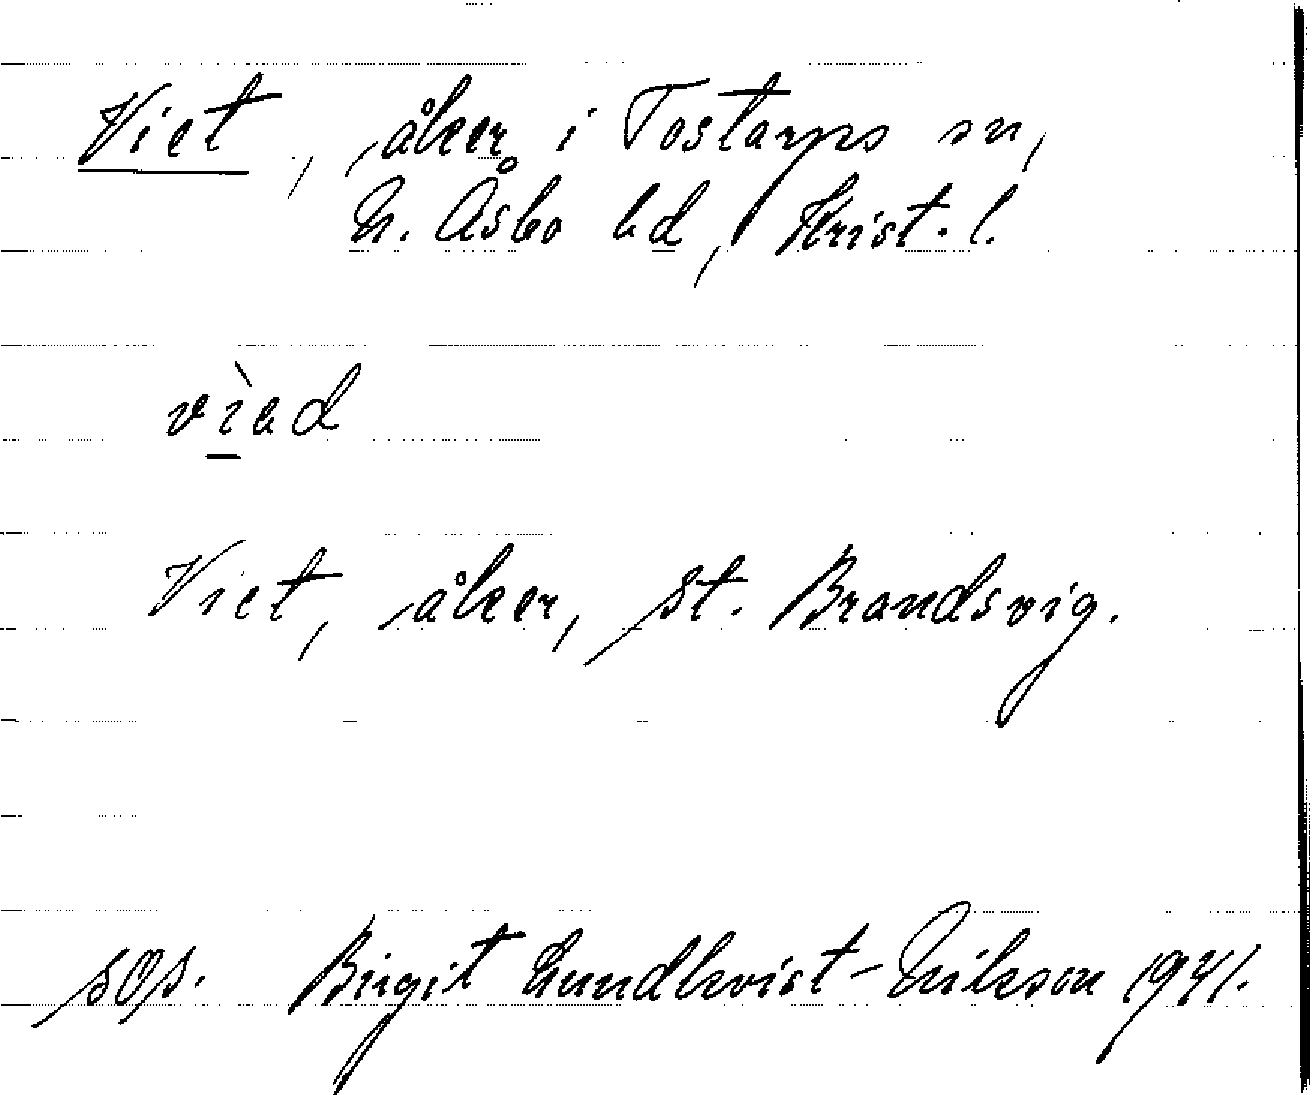 Viet, åker i Tostarps sn,
N. Åsbo hd, Krist. l.
vìad
Viet, åker, St. Brandsvig.
sos. Birgit Lundkvist-Nilsson 1941.